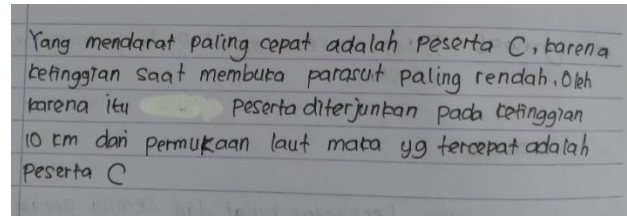 Yang mendarat paling cepat adalah Peserta C, karena
ketinggian saat membuka parasut paling rendah. Oleh
karena itu Peserta diterjunkan pada ketinggian
10 km dari permukaan laut maka yg tercepat adalah
Peserta C